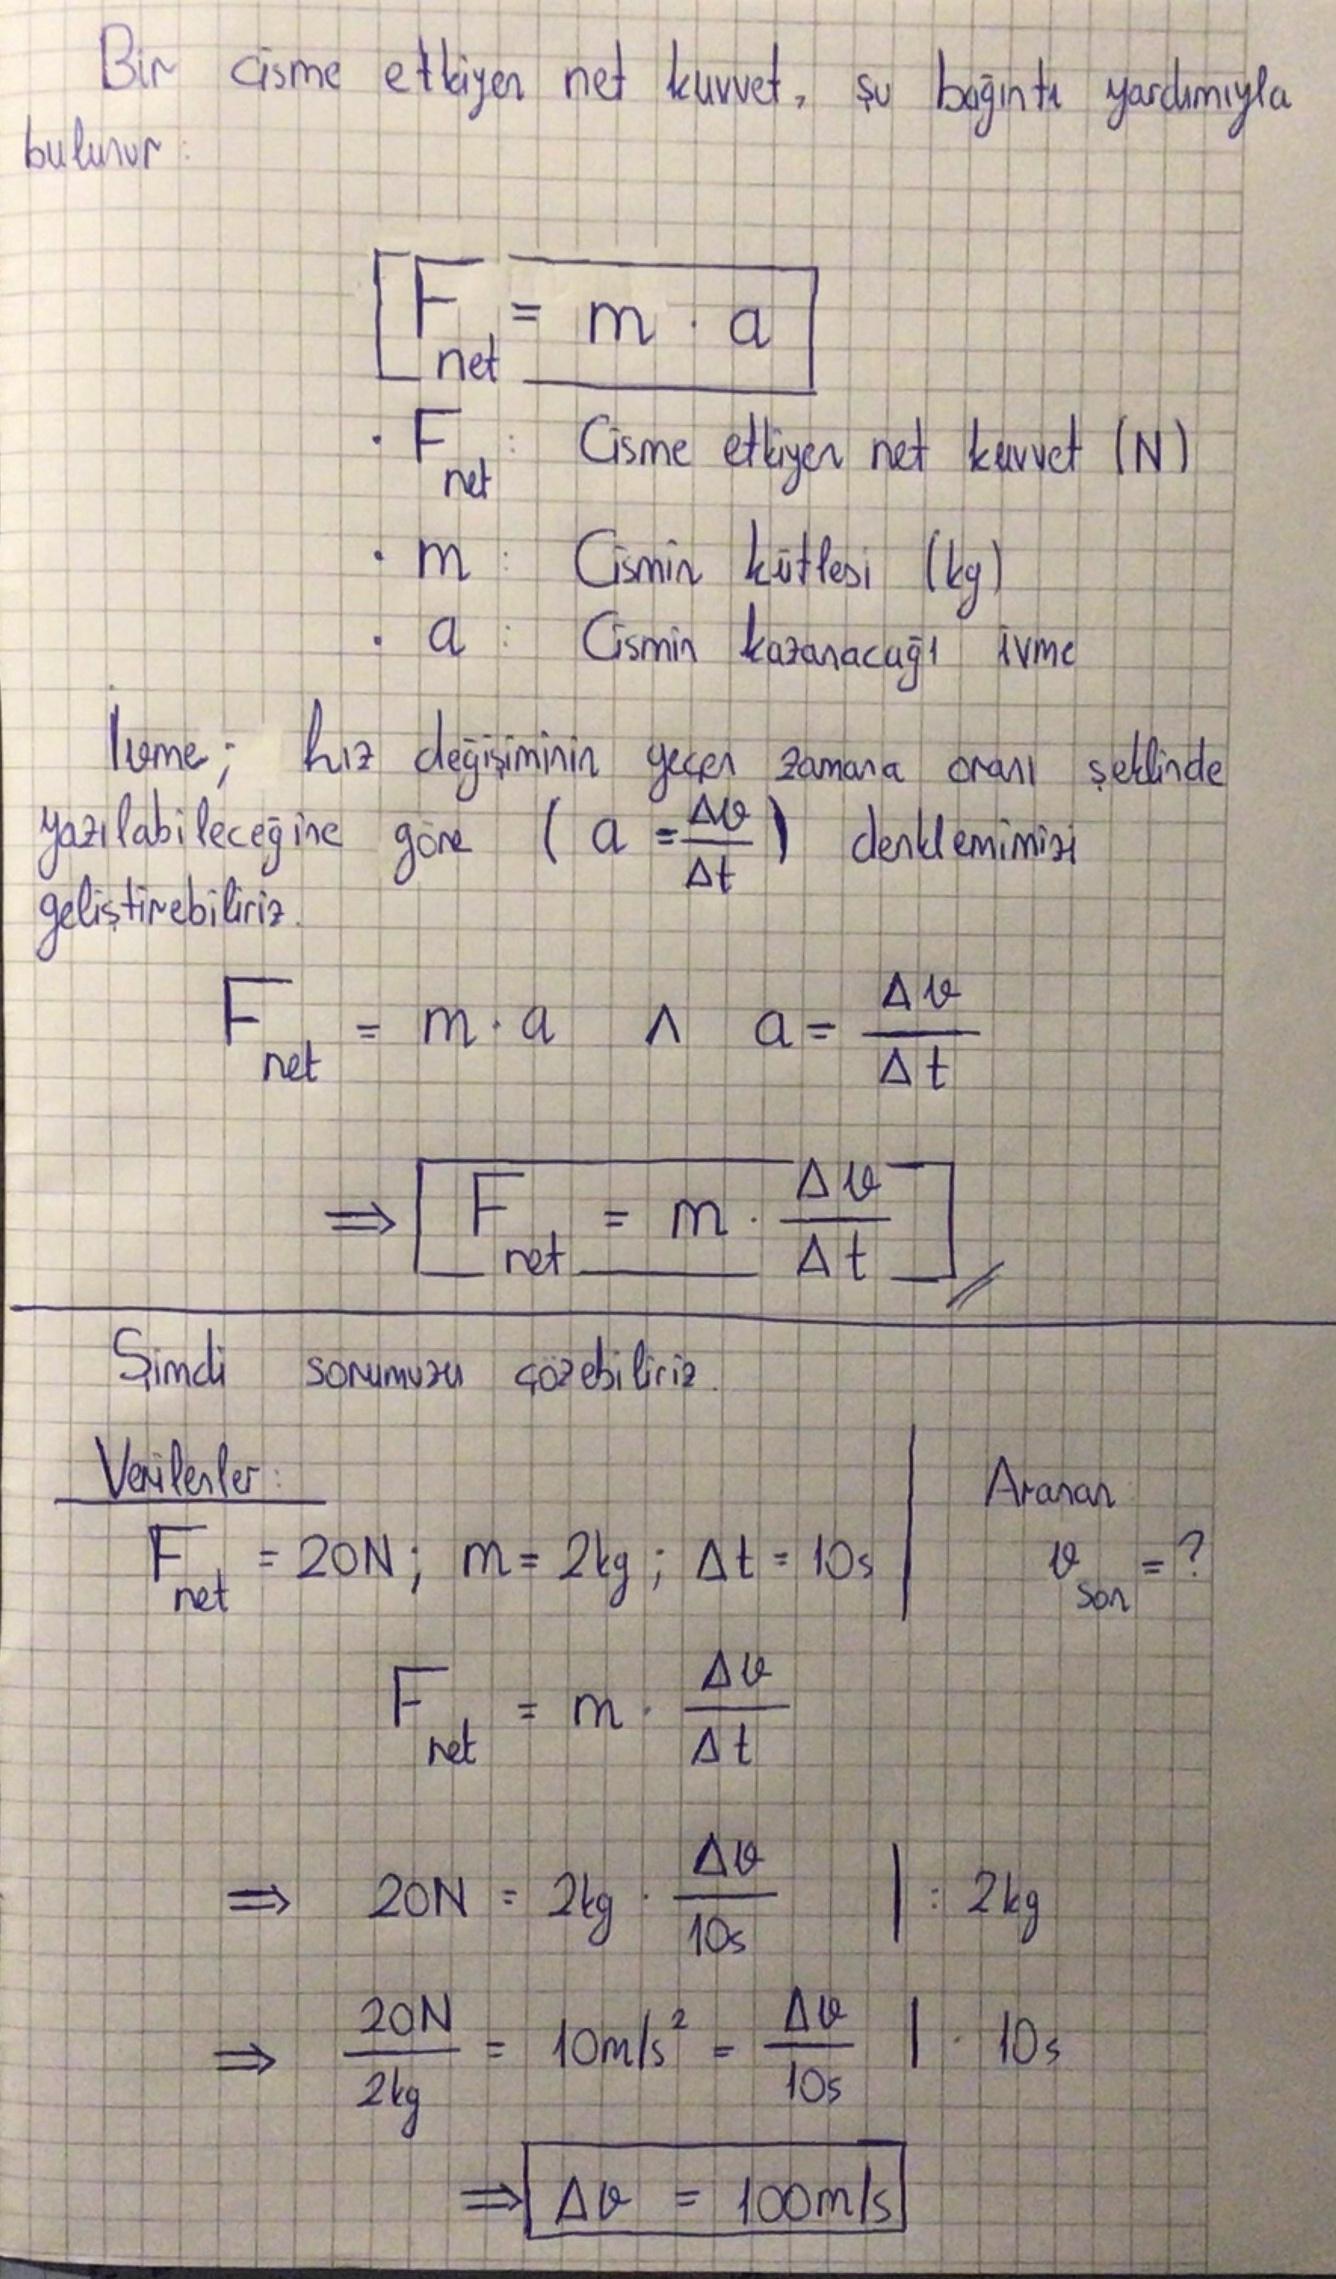 Bir cisme etkiyen net kuvvet, şu bağıntı yardımıyla
bulunur:
F_net = m · a
· F_net : Cisme etkiyen net kuvvet (N)
· m : Cismin kütlesi (kg)
· a : Cismin kazanacağı ivme
İvme; hız değişiminin geçen zamana oranı şeklinde
yazılabileceğine göre (a = Δv/Δt) denklemimizi
geliştirebiliriz.
F_net = m · a ∧ a = Δv/Δt
⇒ F_net = m · Δv/Δt
Şimdi sorumuzu çözebiliriz.
Verilenler: | Aranan
F_net = 20N; m = 2kg; Δt = 10s | v_son = ?
F_net = m · Δv/Δt
⇒ 20N = 2kg · Δv/10s | : 2kg
⇒ 20N/2kg = 10m/s² = Δv/10s | · 10s
⇒ Δv = 100m/s